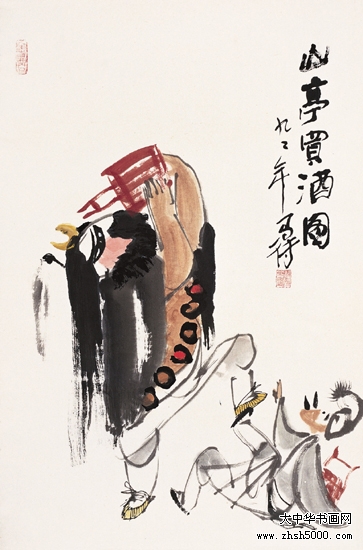 山亭買酒圖
九二年 马得
大中华书画网
www.zhsh5000.com